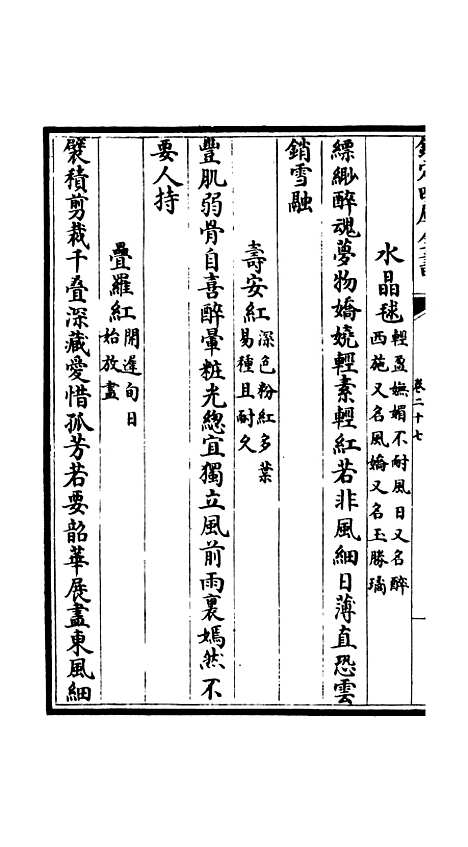 欽定四庫全書
卷二十七
水晶毬輕盈嫵媚不耐風日又名醉
西施又名風嬌又名玉勝璚
縹緲醉魂夢物嬌嬈輕素輕紅若非風細日薄直恐雲
銷雪融
壽安紅深色粉紅多葉
易種且耐久
豐肌弱骨自喜醉暈粧光總宜獨立風前雨裏嫣然不
要人持
疊羅紅開遲旬日
始放盡
襞積剪裁千疊深藏愛惜孤芳若要韶華展盡東風細